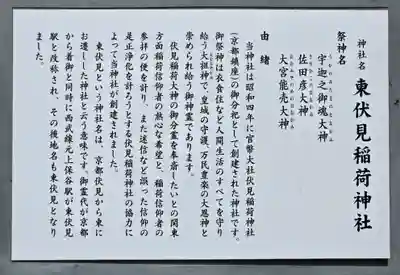 神社名 東伏見稲荷神社
祭神名
宇迦之御魂大神
佐田彦大神
大宮能売大神
由緒
当神社は昭和四年に官幣大社伏見稲荷神社
(京都鎮座)の御分祀として創建された神社です。
御祭神は衣食住など人間生活のすべてを守り
給う大祖神で、皇城の守護、万民豊楽の大恩神と
崇められ給う御神霊であります。
伏見稲荷大神の御分霊を奉斎したいとの関東
方面稲荷信仰者の熱心な希望と、稲荷信仰者の
参拝の便を計り、また迷信など誤った信仰の
是正浄化を計ろうとする伏見稲荷神社の協力に
よって当神社が創建されました。
東伏見という神社名は、京都伏見から東に
お遷しした神社と云う意味です。御霊代が京都
から着御と同時に西武線元上保谷駅が東伏見
駅と改称され、その後地名も東伏見となり
ました。